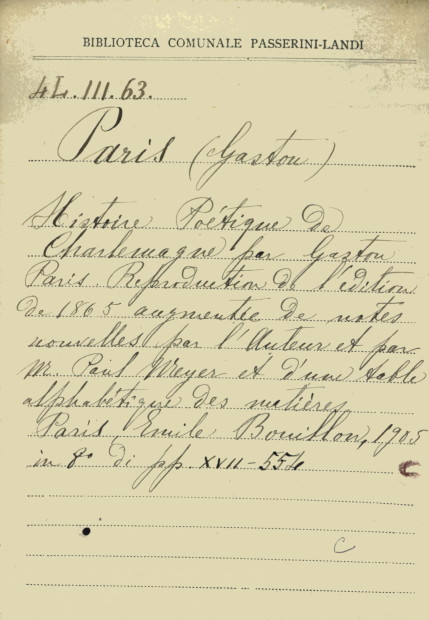 BIBLIOTECA COMUNALE PASSERINI-LANDI
4L.III.63.
Paris (Gaston)
Histoire Poétique de
Charlemagne par Gaston
Paris. Reproduction de l'édition
de 1865 augmentée de notes
nouvelles par l'Auteur et par
M. Paul Meyer et d'une table
alphabétique des matières
Paris, Emile Bouillon, 1905
in 8° di pp. XVII-554
C